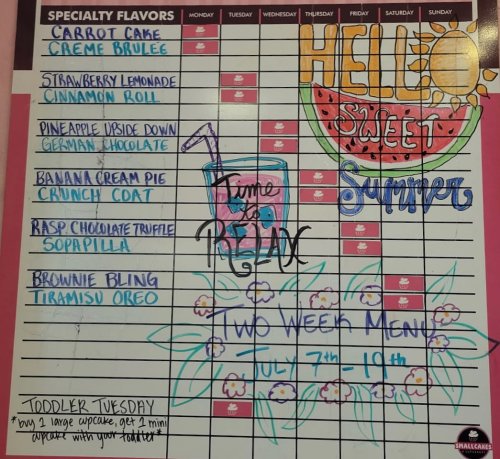 SPECIALTY FLAVORS MONDAY TUESDAY WEDNESDAY THURSDAY FRIDAY SATURDAY SUNDAY
CARROT CAKE
CREME BRULEE
HELLO
STRAWBERRY LEMONADE
CINNAMON ROLL
SWEET
PINEAPPLE UPSIDE DOWN
GERMAN CHOCOLATE
BANANA CREAM PIE
CRUNCH COAT
Summer
Time
to
RELAX
RASP. CHOCOLATE TRUFFLE
SOPAPILLA
BROWNIE BLING
TIRAMISU OREO
TWO WEEK MENU
JULY 7th - 19th
TODDLER TUESDAY
*buy 1 large cupcake, get 1 mini
cupcake with your toddler*
SMALLCAKES